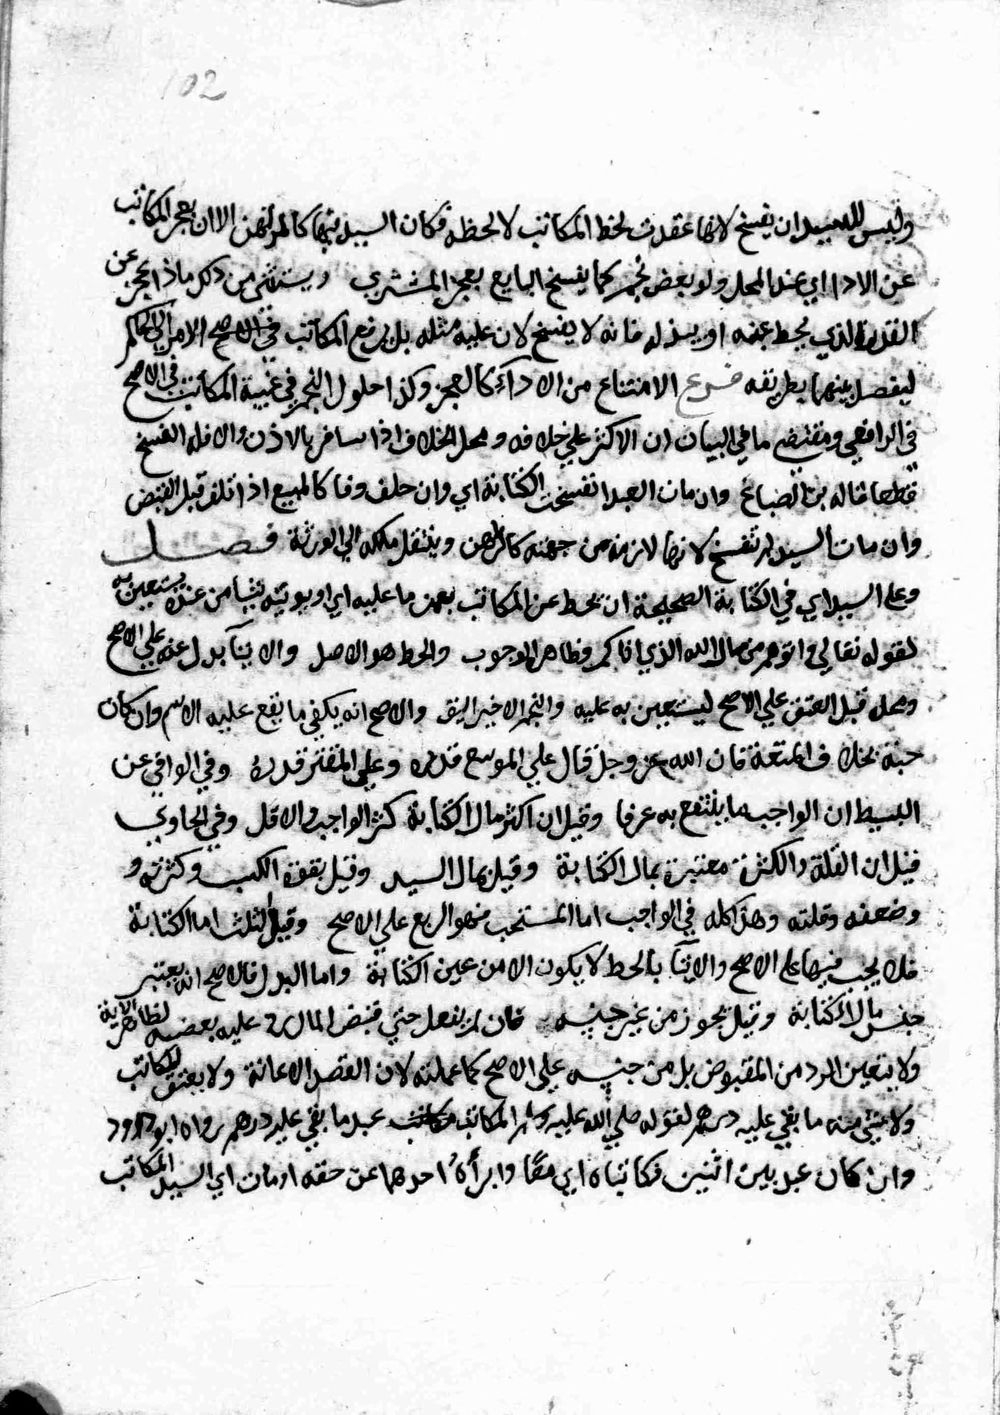 102
وليس للسيد ان يفسخ لانها عقدت لحظ المكاتب لا لحظه فكان السيد فيها كالمرتهن الا ان يعجز المكاتب
عن الادا اي عند المحل ولو بعض نجم كما يفسخ البايع بعجز المشتري ويستثنى من ذلك ما اذا عجز عن
القدر الذي يحط عنه او يبذله فانه لا يفسخ لان عليه مثله بل يرفع المكاتب في الاصح الامر الى الحاكم
ليفصل بينهما بطريقه فرع الامتناع من الاداء كالعجز وكذا حلول النجم في غيبة المكاتب في الاصح
في الرافعي ومقتضى ما في البيان ان الاكثر علي خلافه ومحل الخلاف اذا سافر بالاذن والا فله الفسخ
قطعا قاله بن الصباغ وان مات العبد انفسخت الكتابة اي وان خلف وفا كالمبيع اذا تلف قبل القبض
وان مات السيد لم تنفسخ لانها لازمة من جهته كالرهن وينتقل ملكه الي الورثة فصل
وعلى السيد اي في الكتابة الصحيحة ان يحط عن المكاتب بعض ما عليه اي او يوتيه شيا من عنده يستعين به
لقوله تعالي واتوهم من مال الله الذي اتاكم وظاهره الوجوب والحط هو الاصل والايتآ بدل عنه علي الاصح
ومحله قبل العتق علي الاصح ليستعين به عليه والنجم الاخير اليق والاصح انه يكفي ما يقع عليه الاسم وان كان
حبة بخلاف المتعة فان الله عز وجل قال علي الموسع قدره وعلى المقتر قدره وفي الوافي عن
البسيط ان الواجب ما ينتفع به عرفا وقيل ان اكثر مال الكتابة كثر الواجب والا قل وفي الحاوي
قيل ان القلة والكثرة معتبرة بمال الكتابة وقيل بمال السيد وقيل بقوة الكسب وكثرته و
وضعفه وقلته وهذا كله في الواجب اما المستحب فهو الربع على الاصح وقيل الثلث اما الكتابة
فلا يجب فيها على الاصح والايتآ بالحط لا يكون الا من عين الكتابة واما البدل فالاصح انه يعتبر
جنس مال الكتابة وقيل يجوز من غير جنسه فان لم يفعل حتي قبض المال رد عليه بعضه لظاهر الاية
ولا يتعين الرد من المقبوض بل من جنسه علي الاصح كما علمته لان القصد الاعانة ولا يعتق المكاتب
ولا شي منه ما بقي عليه درهم لقوله صلي الله عليه وسلم المكاتب عبد ما بقي عليه درهم رواه ابو داود
وان كان عبد بين اثنين فكاتباه اي معًا وابرأه احدهما عن حقه او مات اي السيد المكاتب